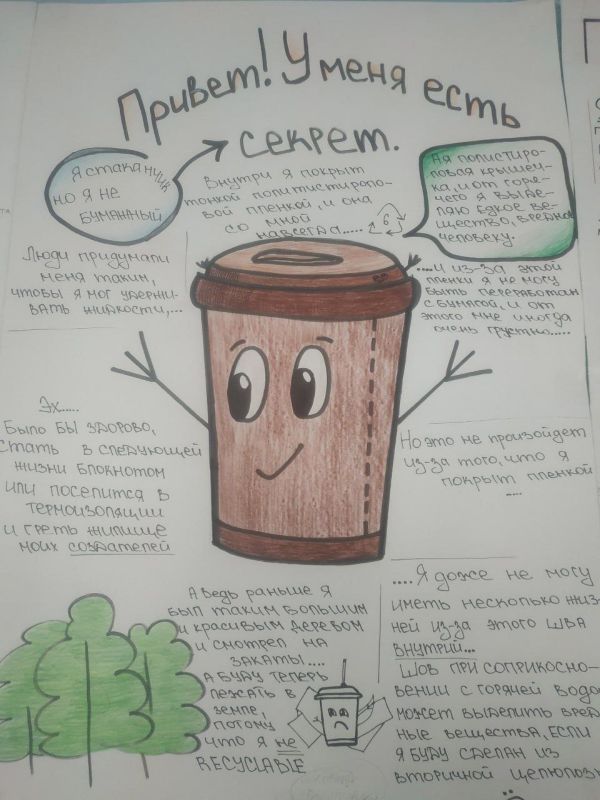 Привет! У меня есть
секрет.
Я стаканчик
но я не
бумажный
Внутри я покрыт
тонкой политистиропо-
вой пленкой, и она
со мной
навсегда.....
А я полистиро-
ловая крышеч-
ка, и от горя-
чего я выде-
ляю едкое ве-
щество, вредное
человеку.
6
Люди придумали
меня таким,
чтобы я мог удержи-
вать жидкости,...
....и из-за этой
пленки я не могу
быть переработан
с бумагой, и от
этого мне иногда
очень грустно.....
Эх.....
Было бы здорово,
стать в следующей
жизни блокнотом
или поселится в
термоизоляции
и греть жилище
моих создателей
Но это не произойдет
из-за того, что я
покрыт пленкой
....
А ведь раньше я
был таким большим
и красивым деревом
и смотрел на
закаты....
А буду теперь
лежать в
земле,
потому
что я не
RECYCLABLE
....Я даже не могу
иметь несколько жиз-
ней из-за этого шва
внутрии...
Шов при соприкосно-
вении с горячей водой
может выделить вред-
ные вещества, если
я буду сделан из
вторичной целюлозы